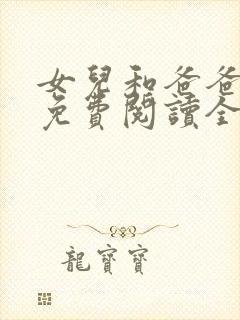 女兒和爸爸
免費閱讀全
龍寶寶